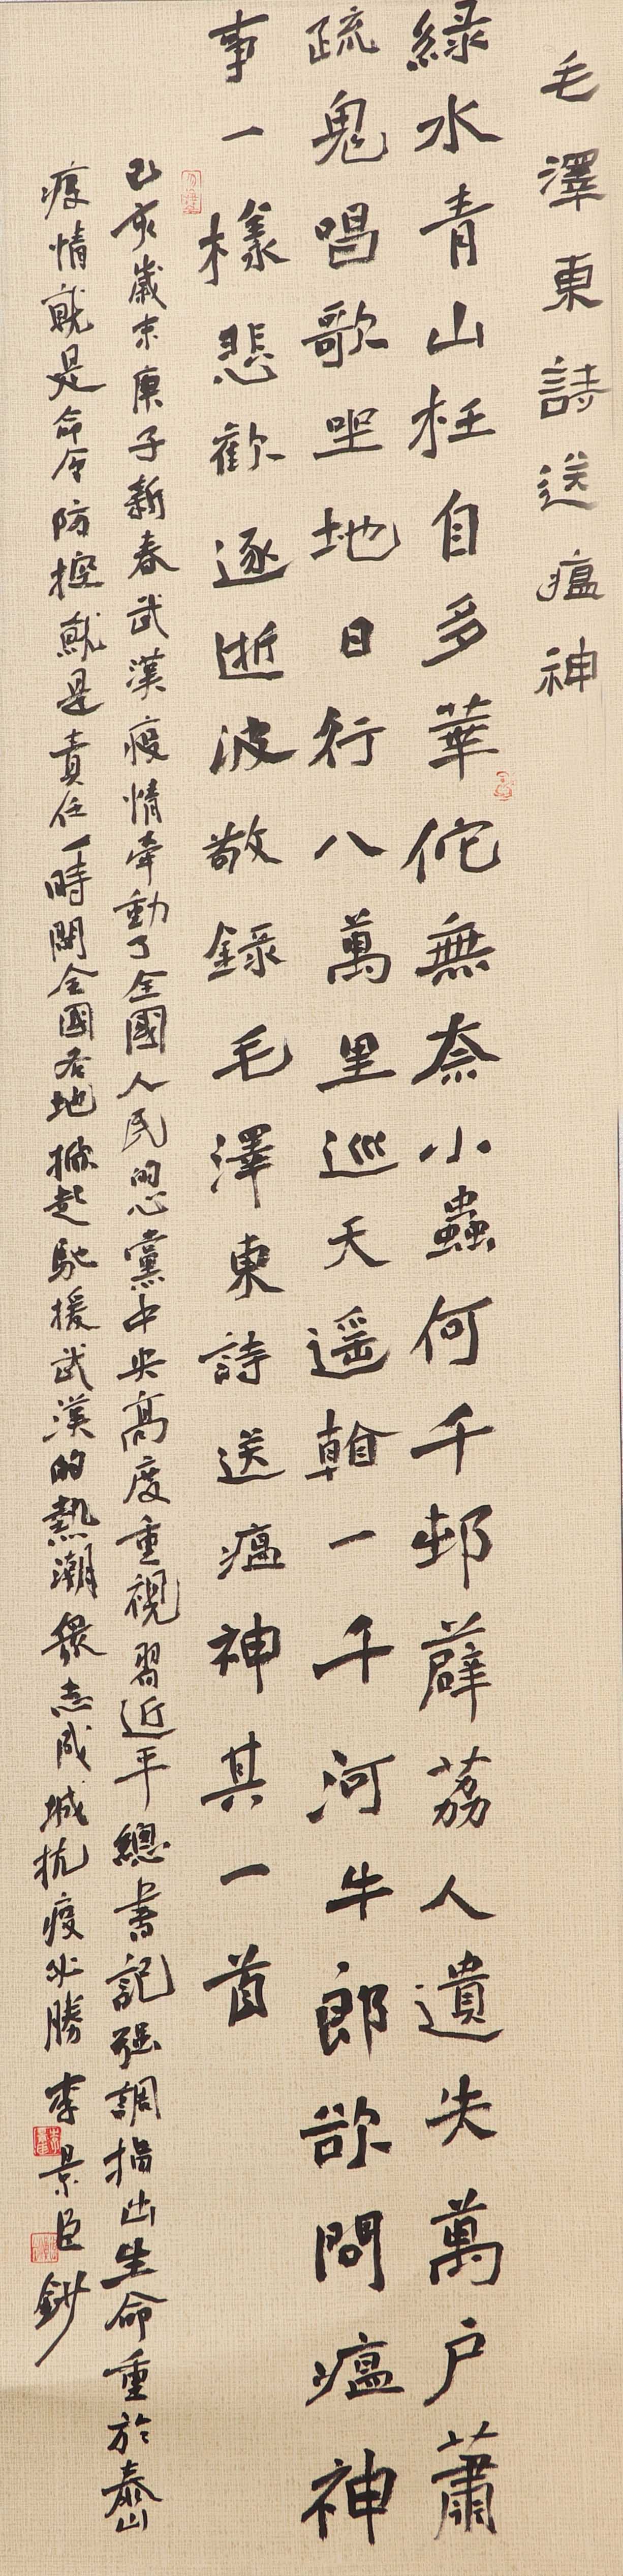 毛澤東詩送瘟神
綠水青山枉自多華佗無奈小蟲何千邨薜荔人遺失萬户蕭
疏鬼唱歌坐地日行八萬里巡天遥看一千河牛郎欲問瘟神
事一樣悲歡逐逝波敬錄毛澤東詩送瘟神其一首
己亥歲末庚子新春武漢疫情牽動了全國人民的心黨中央高度重視習近平總書記强調指出生命重於泰山
疫情就是命令防控就是責任一時間全國各地掀起馳援武漢的熱潮衆志成城抗疫必勝李景臣鈔